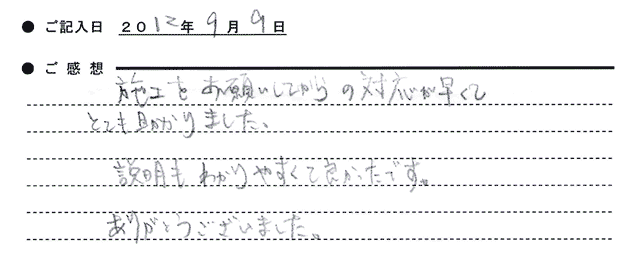 ● ご記入日 2012年 9月 9日
● ご感想
施工をお願いしてからの対応が早くて
とても助かりました、
説明もわかりやすくて良かったです。
ありがとうございました。